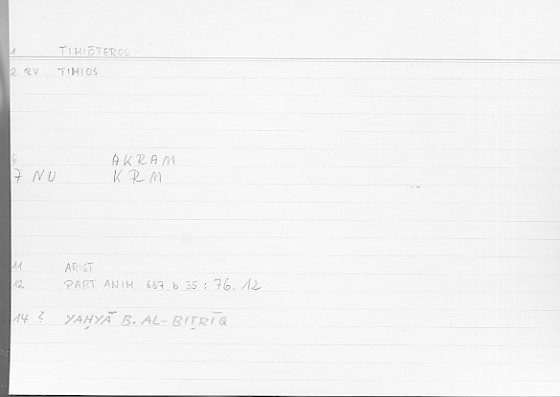 1 TIMIŌTEROS
2 RV TIMIOS
6 AKRAM
7 NU KRM
11 ARIST
12 PART ANIM 667 b 35 : 76.12
14 ? YAḤYĀ B. AL-BIṬRĪQ